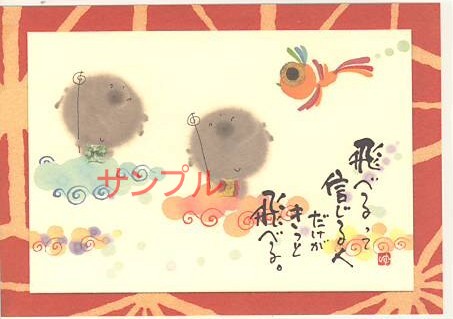 飛べるって
信じる人
だけが
きっと
飛べる。
サンプル